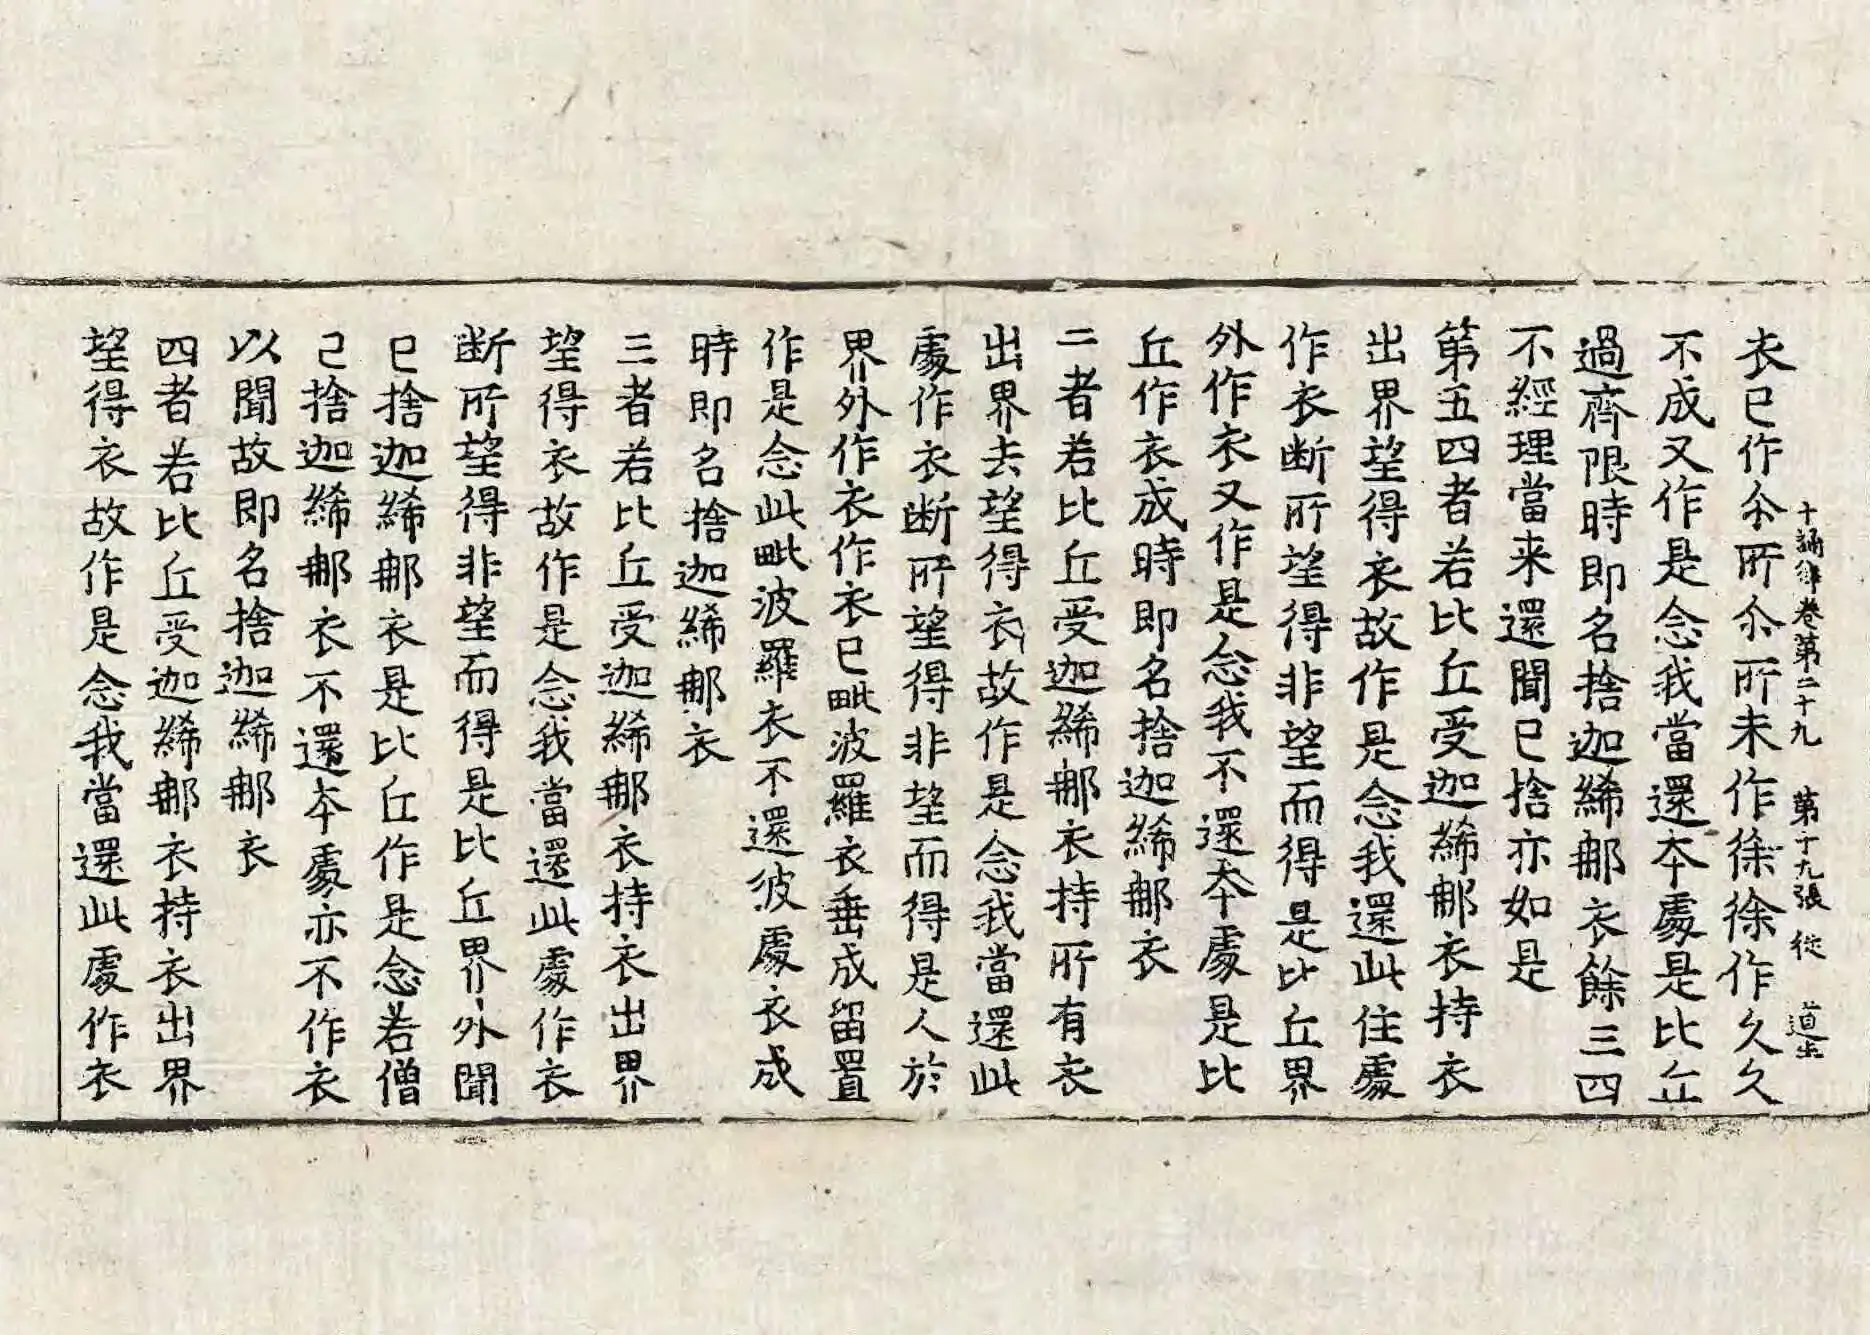 十誦律卷第二十九　第十九張　從　道生
衣已作尒所尒所未作徐徐作久久
不成又作是念我當還夲處是比丘
過齊限時即名捨迦絺那衣餘三四
不經理當来還聞已捨亦如是
第五四者若比丘受迦絺那衣持衣
出界望得衣故作是念我還此住處
作衣断所望得非望而得是比丘界
外作衣又作是念我不還夲處是比
丘作衣成時即名捨迦絺那衣
二者若比丘受迦絺那衣持所有衣
出界去望得衣故作是念我當還此
處作衣断所望得非望而得是人於
界外作衣作衣已毗波羅衣垂成留置
作是念此毗波羅衣不還彼處衣成
時即名捨迦絺那衣
三者若比丘受迦絺那衣持衣出界
望得衣故作是念我當還此處作衣
断所望得非望而得是比丘界外聞
已捨迦絺那衣是比丘作是念若僧
已捨迦絺那衣不還夲處亦不作衣
以聞故即名捨迦絺那衣
四者若比丘受迦絺那衣持衣出界
望得衣故作是念我當還此處作衣